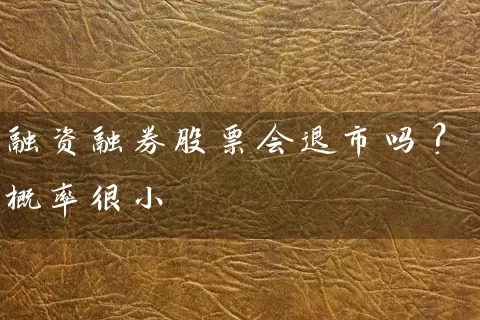 融资融券股票会退市吗？
概率很小